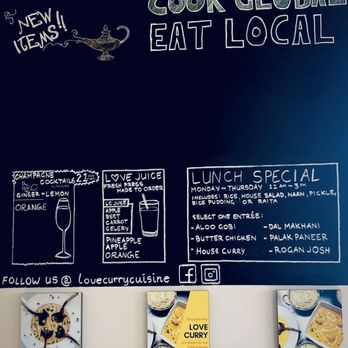 NEW
ITEMS!!
COOK GLOBAL
EAT LOCAL
CHAMPAGNE
COCKTAILS
21+
GINGER + LEMON
ORANGE
LOVE JUICE
FRESH PRESS
MADE TO ORDER
APPLE
BEET
CARROT
CELERY
PINEAPPLE
APPLE
ORANGE
LUNCH SPECIAL
MONDAY ~ THURSDAY 11AM ~ 3PM
INCLUDES: RICE, HOUSE SALAD, NAAN, PICKLE,
RICE PUDDING OR RAITA
SELECT ONE ENTRÉE:
- ALOO GOBI - DAL MAKHANI
- BUTTER CHICKEN - PALAK PANEER
- HOUSE CURRY - ROGAN JOSH
FOLLOW US @ lovecurrycuisine
LOVE
CURRY